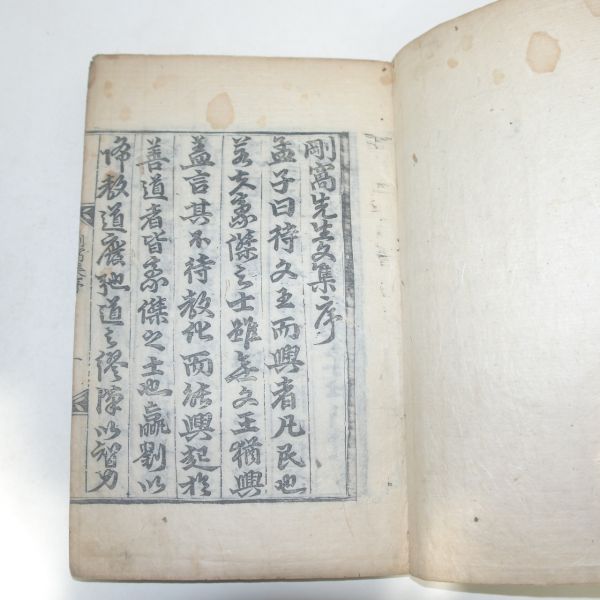 剛窩先生文集序
孟子曰待文王而興者凡民也
若夫豪傑之士雖無文王猶興
盖言其不待教化而能興起於
善道者皆豪傑之士也嬴劉以
降教道廢弛道之僇陳以智力